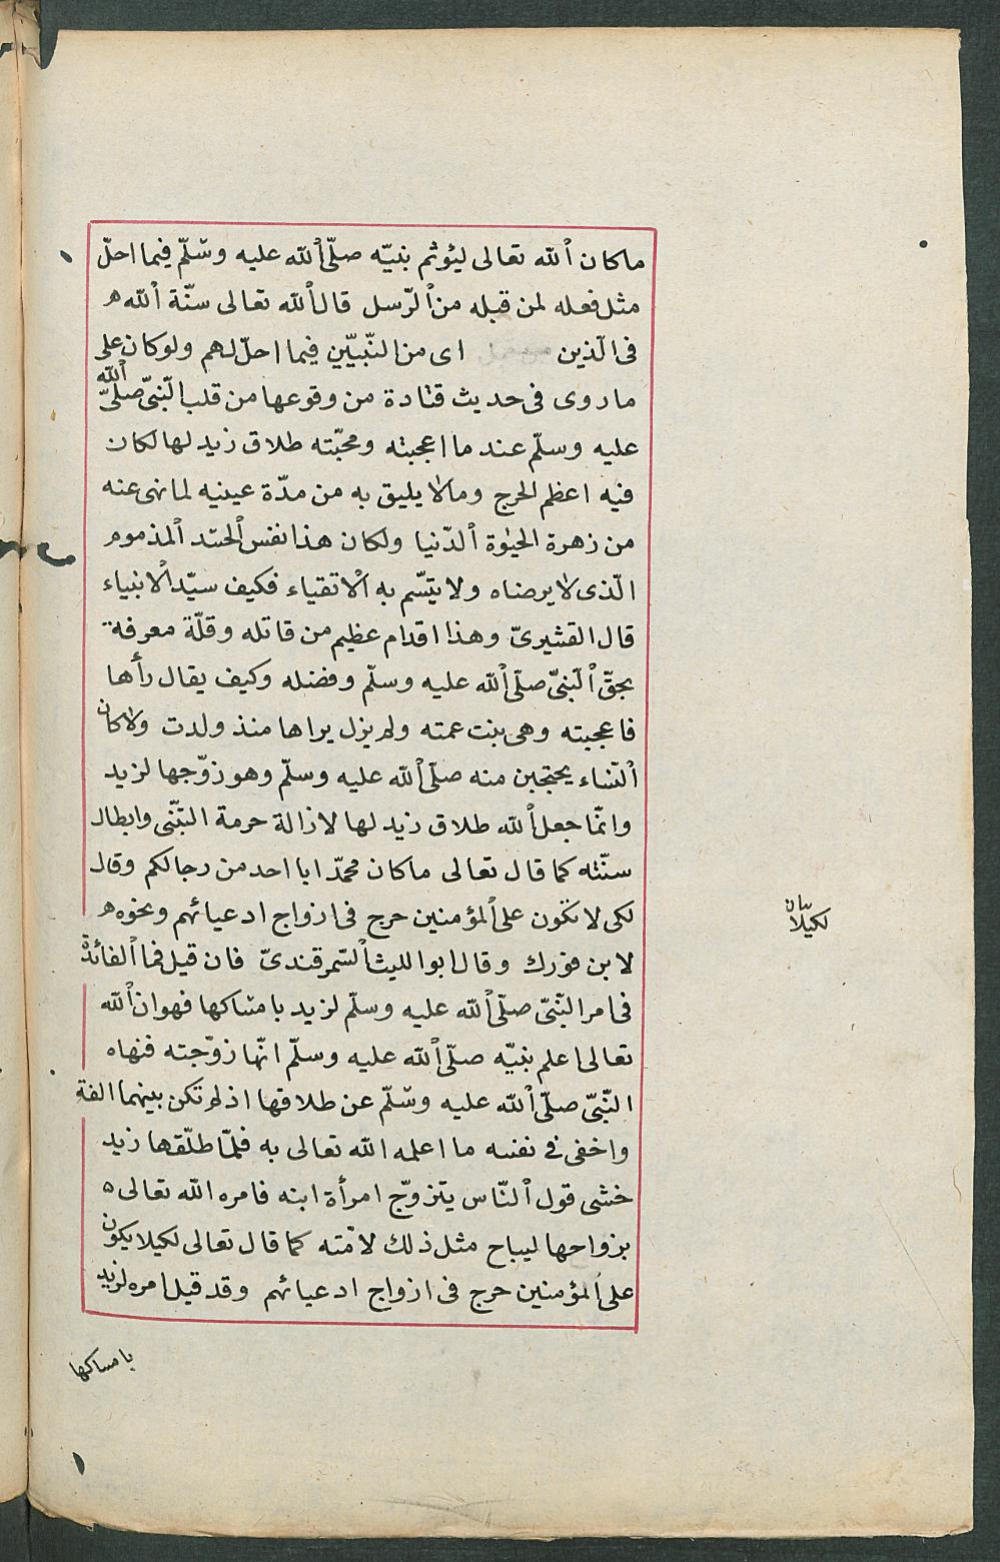 ما كان الله تعالى ليؤثم نبيّه صلّى الله عليه وسّلّم فيما احلّ
مثل فعله لمن قبله من الرّسل قال الله تعالى سنّة الله
فى الّذين اى من النّبيّين فيما احلّ لهم ولو كان على
ما روى فى حديث قتادة من وقوعها من قلب النّبىّ صلّى الله
عليه وسلّم عند ما اعجبته ومحبّته طلاق زيد لها لكان
فيه اعظم الحرج وما لا يليق به من مدّة عينيه لما نهى عنه
من زهرة الحيٰوة الدّنيا ولكان هذا نفس الحسد المذموم
الّذى لا يرضاه ولا يتّسم به الاتقياء فكيف سيّد الانبياء
قال القشيرىّ وهذا اقدام عظيم من قائله وقلّة معرفة
بحقّ النّبىّ صلّى الله عليه وسلّم وفضله وكيف يقال رأها
فاعجبته وهى بنت عمته ولم يزل يراها منذ ولدت ولا كان
النّساء يحتجبن منه صلّى الله عليه وسلّم وهو زوّجها لزيد
وانّما جعل الله طلاق زيد لها لازالة حرمة التبّنّى وابطال
سنّته كما قال تعالى ما كان محمّد ابا احد من رجالكم وقال
لكى لا تكون على المؤمنين حرج فى ازواج ادعيائهم ونحوه
لابن فورك وقال ابو الليث السّمرقندىّ فان قيل فما الفائدة
فى امر النّبىّ صلّى الله عليه وسلّم لزيد بامساكها فهو ان الله
تعالى اعلم نبيّه صلّى الله عليه وسلّم انّها زوّجته فنهاه
النّبىّ صلّى الله عليه وسّلّم عن طلاقها اذ لم تكن بينهما الفة
واخفى فى نفسه ما اعلمه الله تعالى به فلمّا طلّقها زيد
خشى قول النّاس يتزوّج امرأة ابنه فامره الله تعالى
بزواجها ليباح مثل ذلك لامّته كما قال تعالى لكيلا يكون
على المؤمنين حرج فى ازواج ادعيائهم وقد قيل امره لزيد
بامساكها
لكيلا